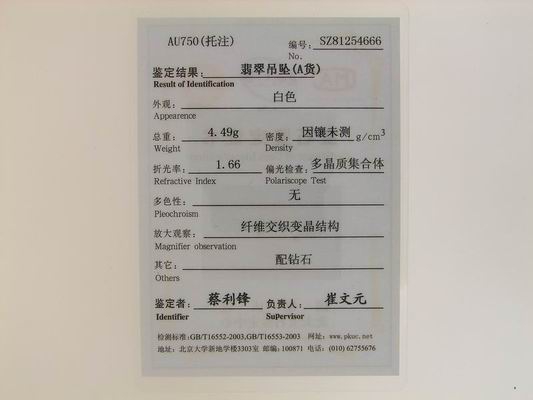 AU750(托注)
编号: SZ81254666
No.
鉴定结果: 翡翠吊坠(A货)
Result of Identification
外观: 白色
Appearence
总重: 4.49g 密度: 因镶未测 g/cm³
Weight Density
折光率: 1.66 偏光检查: 多晶质集合体
Refractive Index Polariscope Test
多色性: 无
Pleochroism
放大观察: 纤维交织变晶结构
Magnifier observation
其它: 配钻石
Others
鉴定者: 蔡利锋 负责人: 崔文元
Identifier SuPervisor
检测标准:GB/T16552-2003,GB/T16553-2003 网址: www.pkuc.net
地址: 北京大学新地学楼3303室 邮编: 100871 电话: (010) 62755676